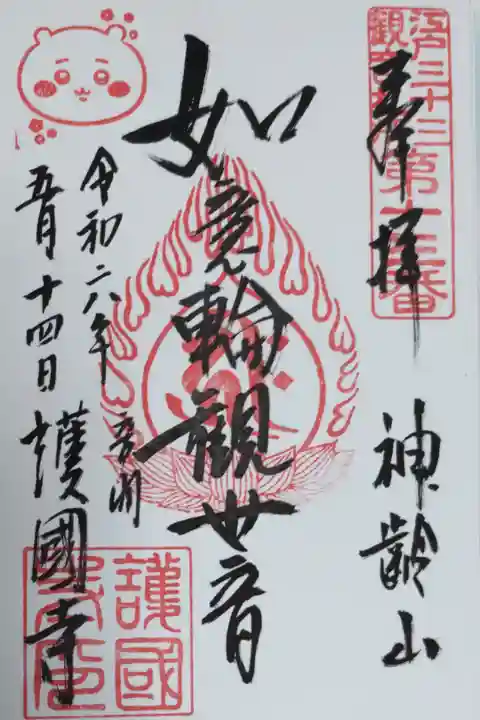 江戸三十三
観音
第十三番
奉拝
神齢山
如意輪観世音
令和六年
五月十四日
音羽
護國寺
護國